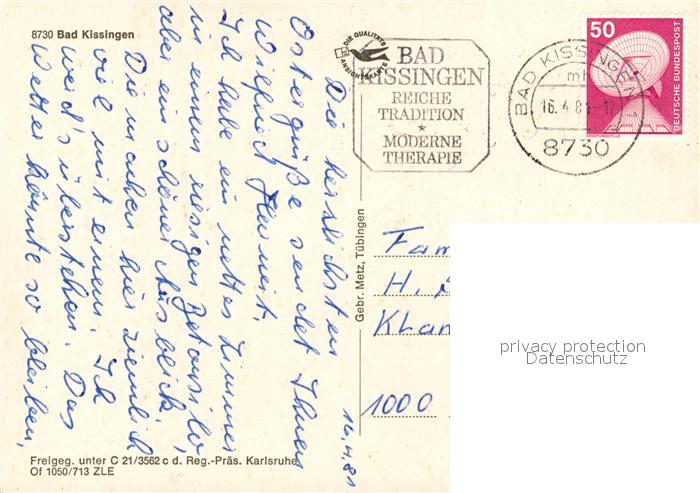 8730 Bad Kissingen
DIE QUALITÄTS
ANSICHTSKARTE
BAD
KISSINGEN
REICHE
TRADITION
*
MODERNE
THERAPIE
BAD KISSINGEN
mh
16.4.81-17
8730
50
DEUTSCHE BUNDESPOST
16.4.81
Die herzlichsten
Ostergrüße sendet Ihnen
Wilfried
Ich habe ein nettes Zimmer
in einem riesigen Betonsilo,
aber ein schöner Ausblick.
Die machen hier ziemlich
viel mit einem. Ich
werd's überstehen. Das
Wetter könnte so bleiben.
Gebr. Metz, Tübingen
Fam
H.
Klan
1000
privacy protection
Datenschutz
Freigeg. unter C 21/3562 c d. Reg.-Präs. Karlsruhe
Of 1050/713 ZLE